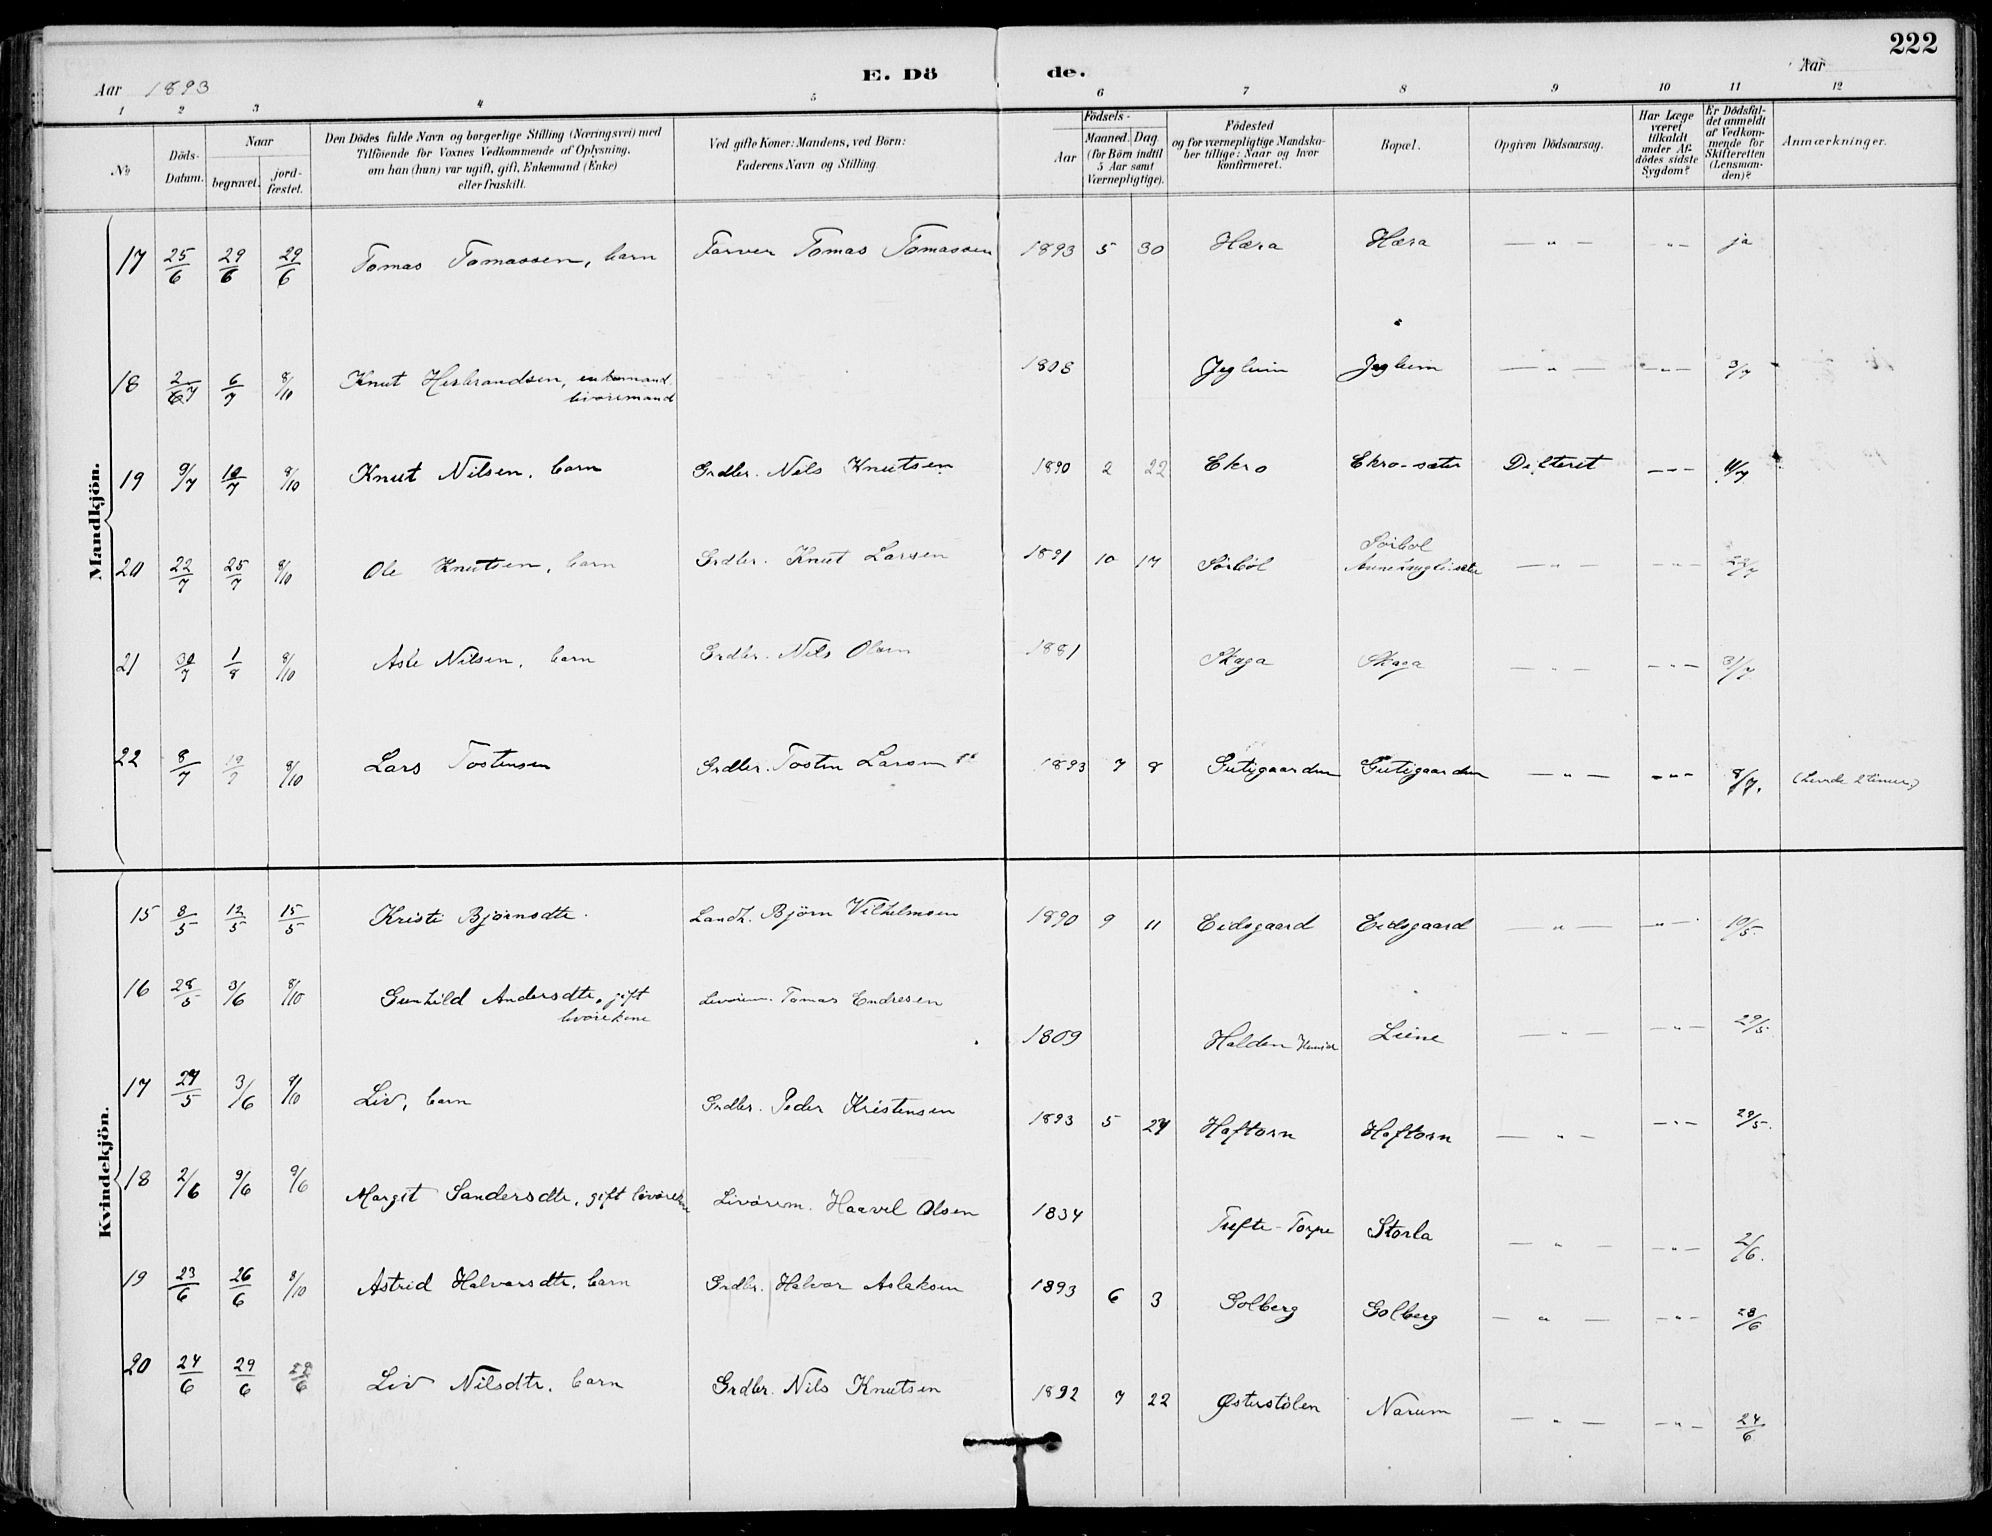 222
E. Dö de.
Aar 1893
Aar
1 2 3 4 5 6 7 8 9 10 11 12
№
Döds-Datum.
Naar
begravet.
jord-fæstet.
Den Dödes fulde Navn og borgerlige Stilling (Næringsvei) med
Tilföiende for Voxnes Vedkommende af Oplysning,
om han (hun) var ugift, gift, Enkemand (Enke)
eller fraskilt.
Ved gifte Koner: Mandens, ved Börn:
Faderens Navn og Stilling.
Födsels-
Aar
Maaned. Dag
(for Börn indtil
5 Aar samt
Værnepligtige).
Födested
og for værnepligtige Mandska-
ber tillige: Naar og hvor
konfirmeret.
Bopæl.
Opgiven Dödsaarsag.
Har Læge
været
tilkaldt
under Af-
dödes sidste
Sygdom?
Er Dödsfal-
det anmeldt
af Vedkom-
mende for
Skifteretten
(Lensman-
den)?
Anmærkninger.
Mandkjön.
17 25/6 29/6 29/6 Tomas Tomassen, barn Farver Tomas Tomassen 1893 5 30 Hæra Hæra — " — — " — ja
18 2/7 6/7 8/10 Knut Herbrandsen, enkemand. 1808 Jegleim Jegleim — " — — " — 3/7
livøremand
19 9/7 10/7 8/10 Knut Nilsen, barn Grdbr. Nils Knutsen 1890 2 22 Ekro Ekro-sæter Difterit — " — 11/7
20 22/7 25/7 8/10 Ole Knutsen, barn Grdbr. Knut Larsen 1891 10 17 Sørbøl Sørbøl — " — — " — 22/7
21 30/7 1/8 8/10 Asle Nilsen, barn Grdbr. Nils Olsen 1881 Skaga Skaga — " — — " — 31/7
22 8/7 19/7 8/10 Lars Tostensen Grdbr. Tosten Larsen 1893 7 8 Gutigaarden Gutigaarden — " — — " — 8/7. (Levde 2 timer)
Kvindekjön.
15 8/5 12/5 15/5 Kristi Bjørnsdtr. Landh. Bjørn Vilhelmsen 1890 9 11 Eidsgaard Eidsgaard — " — — " — 10/5.
16 28/5 3/6 8/10 Gunhild Andersdtr, gift Livørem. Tomas Endresen 1809 Halden Hemsed. Liene — " — — " — 29/5.
livørekone
17 27/5 3/6 8/10 Liv, barn Grdbr. Peder Kristensen 1893 5 27 Haftorn Haftorn — " — — " — 29/5.
18 2/6 9/6 9/6 Margit Sandersdtr, gift livørek. Livørem. Haavel Olsen 1834 Tufte-Torpe Storla — " — — " — 2/6.
19 23/6 26/6 8/10 Astrid Halvarsdtr, barn Grdbr. Halvar Aslaksen 1893 6 3 Golberg Golberg — " — — " — 23/6
20 24/6 29/6 29/6 Liv Nilsdtr, barn Grdbr. Nils Knutsen 1892 7 22 Østerstølen Narum — " — — " — 24/6